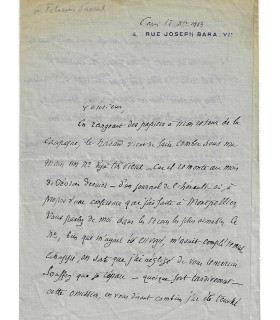 Paris 17 Nov 1913
4, RUE JOSEPH BARA . VIe
Monsieur,
En rangeant des papiers à mon retour de la
campagne, le hasard vient de faire tomber sous ma
main un No déjà ancien — car il remonte au mois
de Février dernier — d'un journal de l'Hérault, où, à
propos d'une conférence que j'ai faite à Montpellier
vous parlez de moi dans les termes les plus aimables. Ce
No, bien que m'ayant été envoyé, m'avait complètement
échappé, en sorte que j'ai négligé de vous remercier.
Souffrez que je répare — quoique fort tardivement —
cette omission, en vous disant combien j'ai été touché